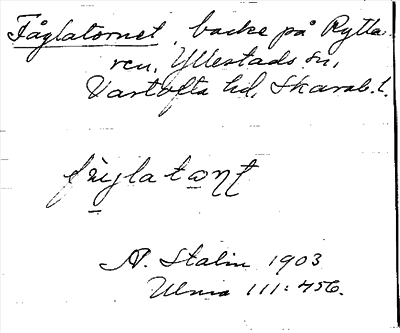 Fåglatornet, backe på Rytta
ren, Yllestads sn,
Vartofta hd, Skarab. l.
fùglaton̥t
A. Stalin 1903
111:456.